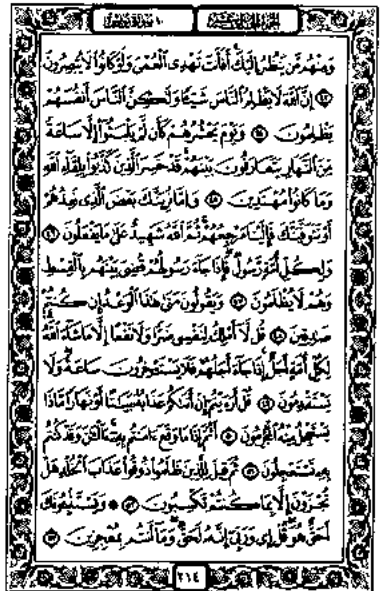 الجزء الحادي عشر
١٠ سورة يونس
وَمِنْهُم مَّن يَنظُرُ إِلَيْكَ أَفَأَنتَ تَهْدِي الْعُمْيَ وَلَوْ كَانُوا لَا يُبْصِرُونَ
٤٣ إِنَّ اللَّهَ لَا يَظْلِمُ النَّاسَ شَيْئًا وَلَٰكِنَّ النَّاسَ أَنفُسَهُمْ
يَظْلِمُونَ ٤٤ وَيَوْمَ يَحْشُرُهُمْ كَأَن لَّمْ يَلْبَثُوا إِلَّا سَاعَةً
مِّنَ النَّهَارِ يَتَعَارَفُونَ بَيْنَهُمْ قَدْ خَسِرَ الَّذِينَ كَذَّبُوا بِلِقَاءِ اللَّهِ
وَمَا كَانُوا مُهْتَدِينَ ٤٥ وَإِمَّا نُرِيَنَّكَ بَعْضَ الَّذِي نَعِدُهُمْ
أَوْ نَتَوَفَّيَنَّكَ فَإِلَيْنَا مَرْجِعُهُمْ ثُمَّ اللَّهُ شَهِيدٌ عَلَىٰ مَا يَفْعَلُونَ ٤٦
وَلِكُلِّ أُمَّةٍ رَّسُولٌ فَإِذَا جَاءَ رَسُولُهُمْ قُضِيَ بَيْنَهُم بِالْقِسْطِ
وَهُمْ لَا يُظْلَمُونَ ٤٧ وَيَقُولُونَ مَتَىٰ هَٰذَا الْوَعْدُ إِن كُنتُمْ
صَادِقِينَ ٤٨ قُل لَّا أَمْلِكُ لِنَفْسِي ضَرًّا وَلَا نَفْعًا إِلَّا مَا شَاءَ اللَّهُ
لِكُلِّ أُمَّةٍ أَجَلٌ إِذَا جَاءَ أَجَلُهُمْ فَلَا يَسْتَأْخِرُونَ سَاعَةً وَلَا
يَسْتَقْدِمُونَ ٤٩ قُلْ أَرَأَيْتُمْ إِنْ أَتَاكُمْ عَذَابُهُ بَيَاتًا أَوْ نَهَارًا مَّاذَا
يَسْتَعْجِلُ مِنْهُ الْمُجْرِمُونَ ٥٠ أَثُمَّ إِذَا مَا وَقَعَ آمَنتُم بِهِ آلْآنَ وَقَدْ كُنتُم
بِهِ تَسْتَعْجِلُونَ ٥١ ثُمَّ قِيلَ لِلَّذِينَ ظَلَمُوا ذُوقُوا عَذَابَ الْخُلْدِ هَلْ
تُجْزَوْنَ إِلَّا بِمَا كُنتُمْ تَكْسِبُونَ ٥٢ وَيَسْتَنبِئُونَكَ
أَحَقٌّ هُوَ قُلْ إِي وَرَبِّي إِنَّهُ لَحَقٌّ وَمَا أَنتُم بِمُعْجِزِينَ ٥٣
٢١٤